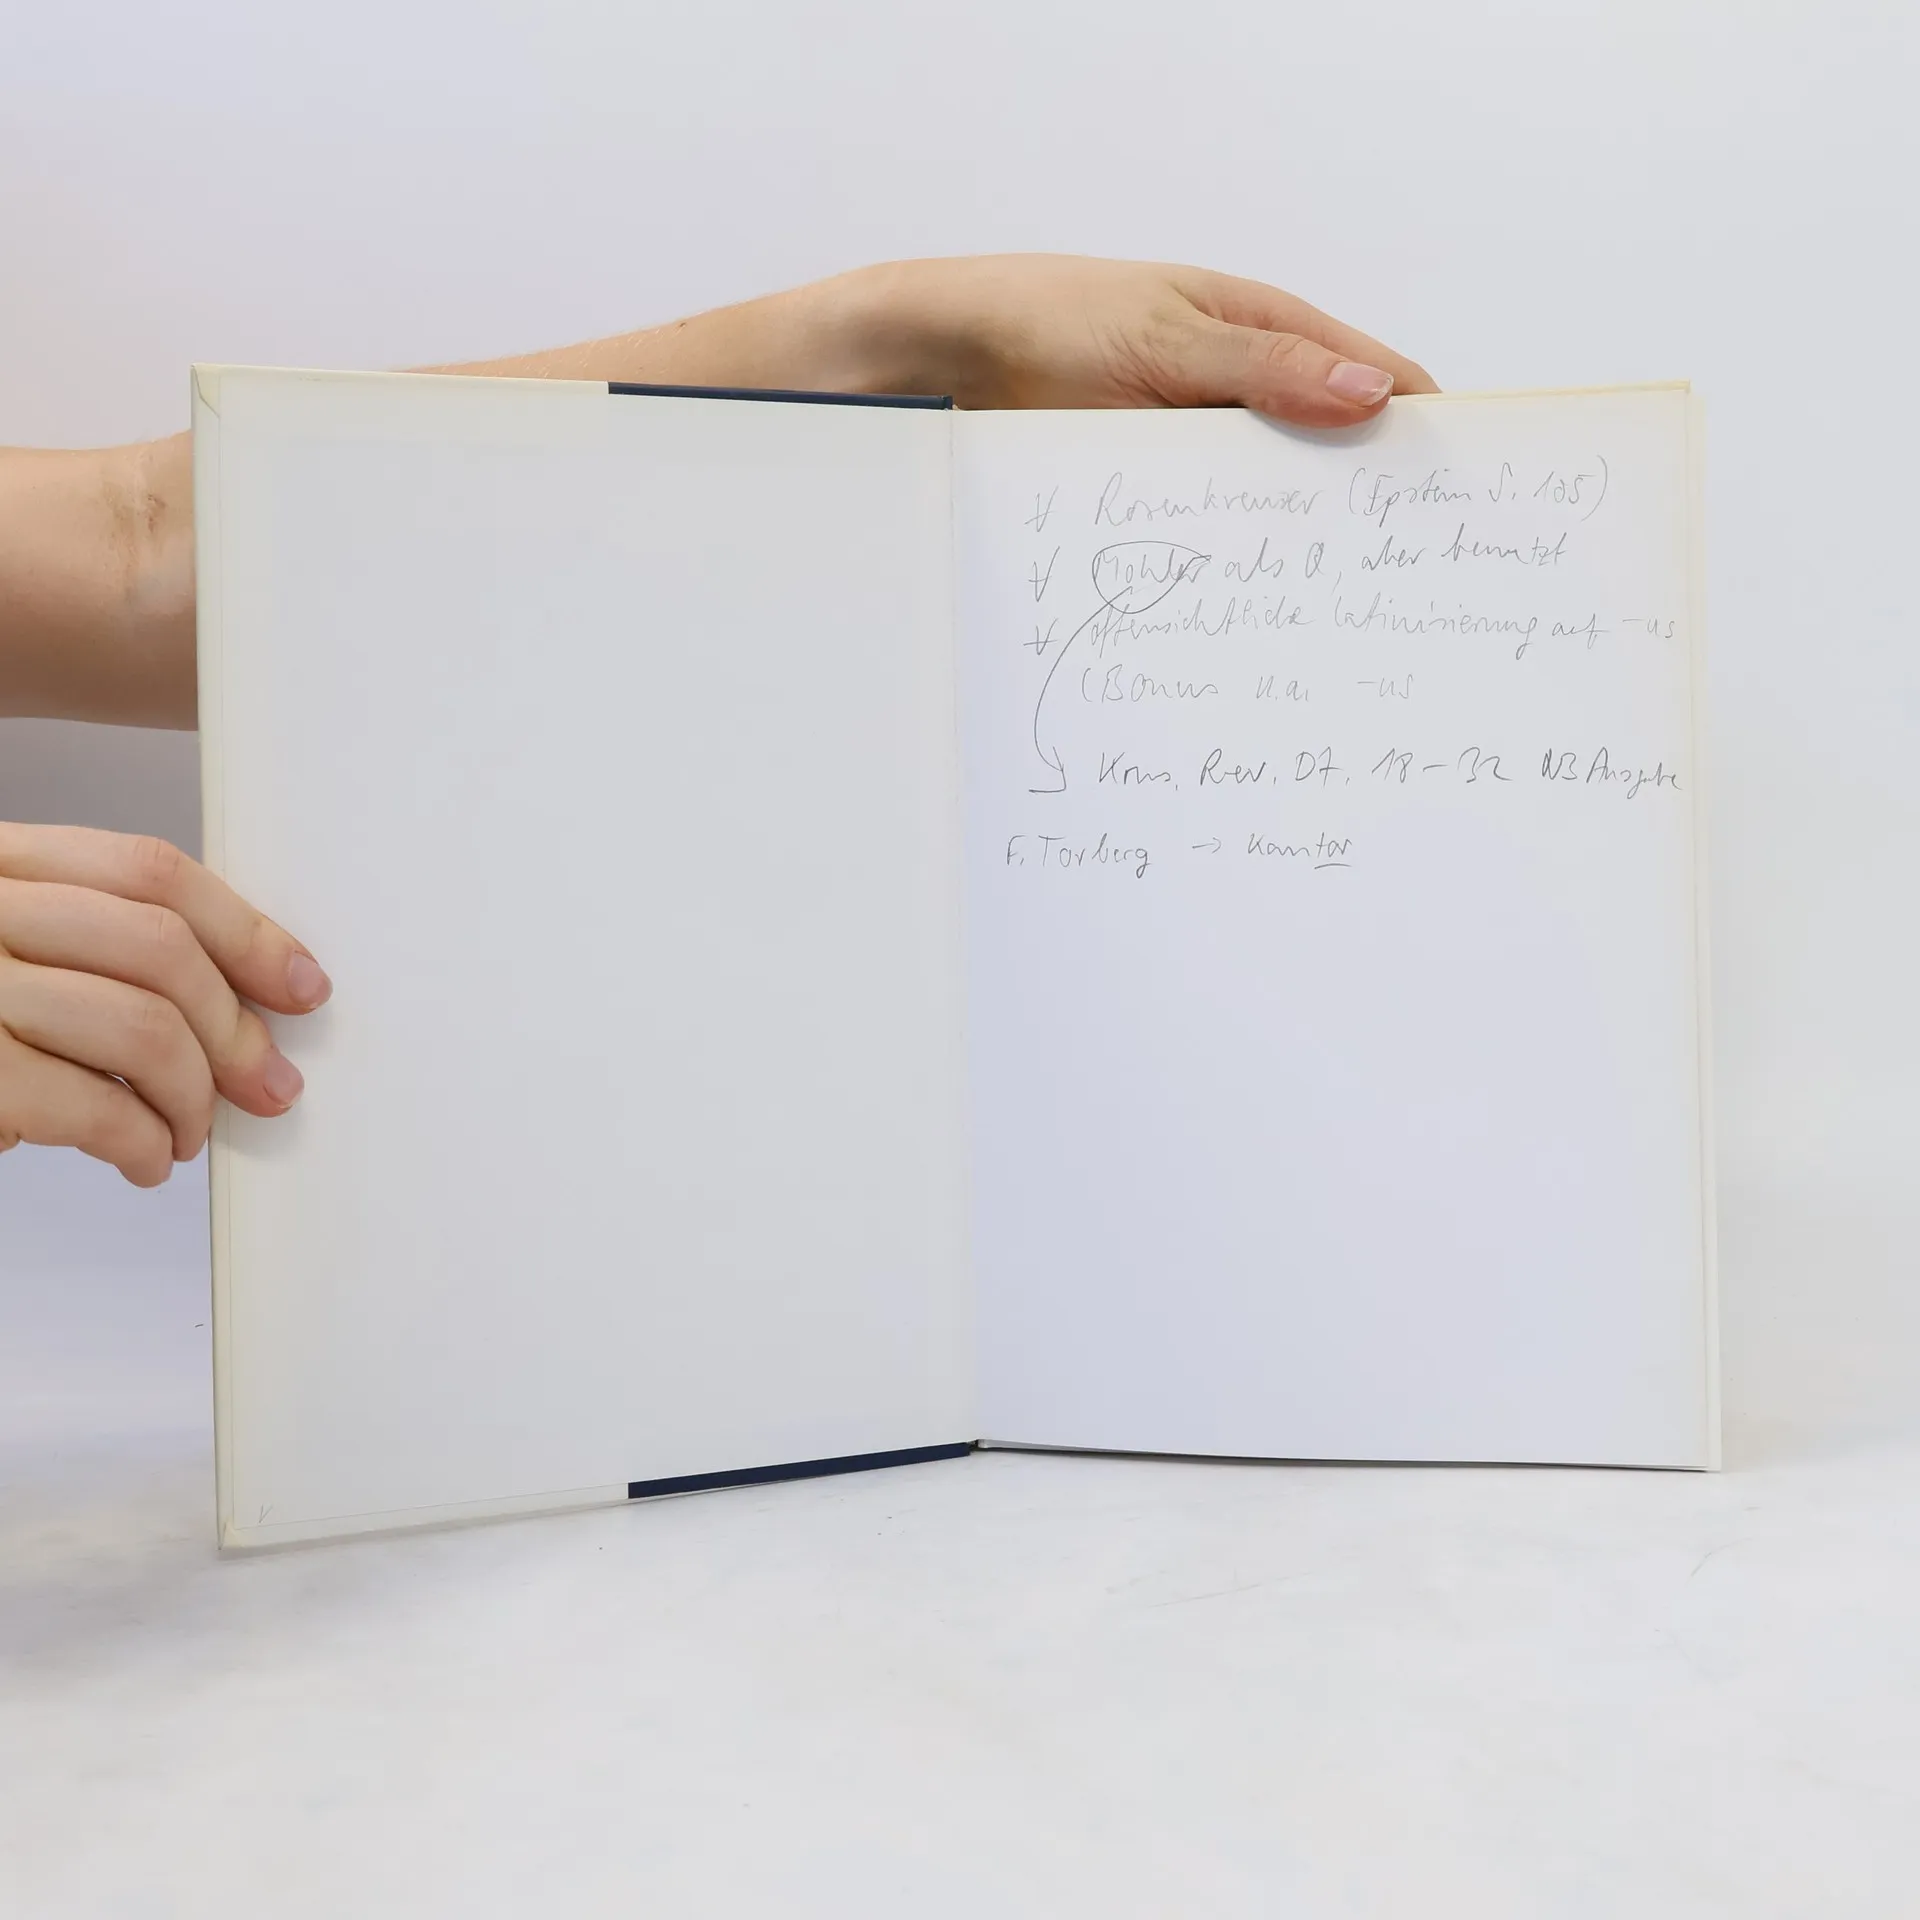 ∀ Rosenkreuzer (Epstein S. 105)
∀ Mohler als Q, aber benutzt
∀ offensichtliche Latinisierung auf -us
(Bonus u.a. -us
Kons. Rev. Dt. 18-32 NB Ausgabe
F. Torberg → Kantor